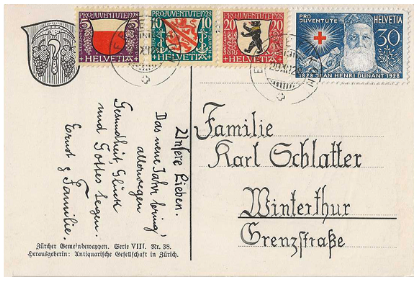 PRO JUVENTUTE 1928
5 5
HELVETIA
PRO JUVENTUTE 1928
10 10
HELVETIA
PRO JUVENTUTE 1928
20 20
HELVETIA
PRO JUVENTUTE
HELVETIA
30
1828 JEAN HENRI DUNANT 1928
Unsere Lieben.
Das neue Jahr bring'
allerwegen
Gesundheit Glück
und Gottes Segen.
Ernst & Familie.
Familie
Karl Schlatter
Winterthur
Grenzstraße
Zürcher Gemeindewappen. Serie VIII. Nr. 38.
Herausgeberin: Antiquarische Gesellschaft in Zürich.